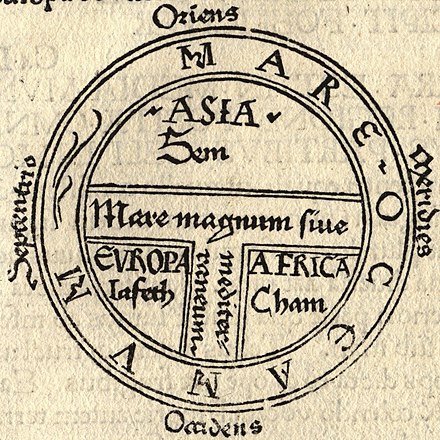 Oriens
MARE-OCCEANVM
ASIA
Sem
Septentrio
Meridies
Mare magnum siue
mediter
raneum
EVROPA
Iafeth
AFRICA
Cham
Occidens